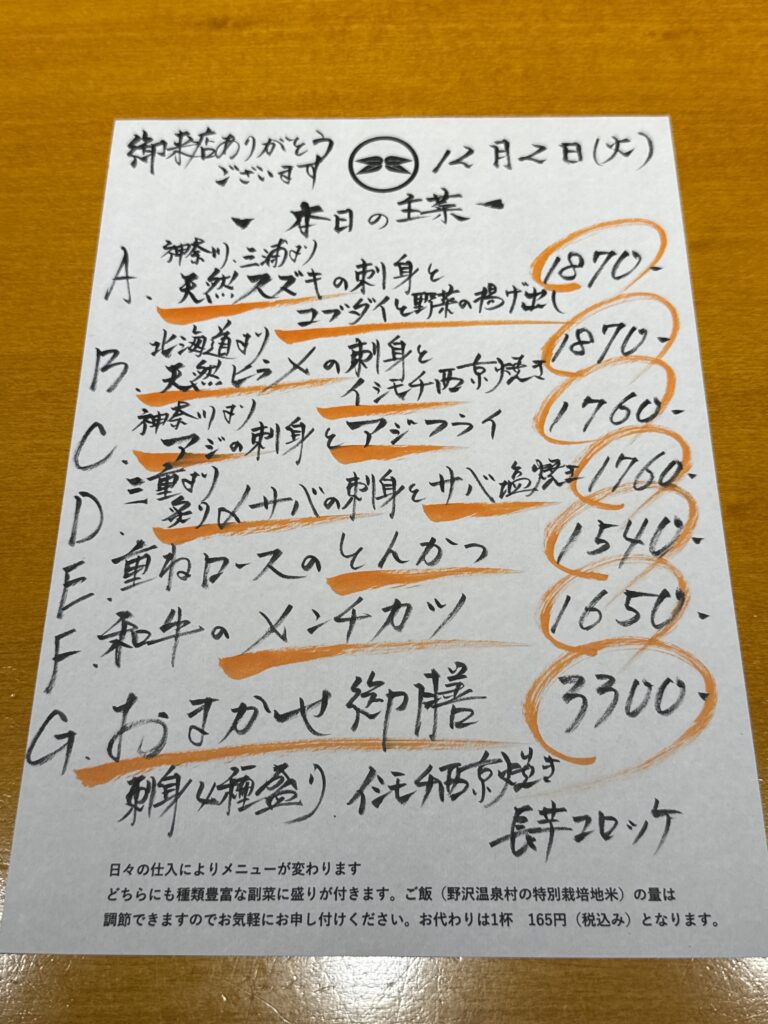 御来店ありがとう
ございます
12月2日(火)
本日の主菜
A. 神奈川、三浦より
天然スズキの刺身と
コブダイと野菜の揚げ出し
1870-
B. 北海道より
天然ヒラメの刺身と
イシモチ西京焼き
1870-
C. 神奈川より
アジの刺身とアジフライ
1760-
D. 三重より
炙り〆サバの刺身とサバ塩焼き
1760-
E. 重ねロースのとんかつ
1540-
F. 和牛のメンチカツ
1650-
G. おまかせ御膳
3300-
刺身4種盛り イシモチ西京焼き
長芋コロッケ
日々の仕入によりメニューが変わります
どちらにも種類豊富な副菜に盛りが付きます。ご飯（野沢温泉村の特別栽培地米）の量は
調節できますのでお気軽にお申し付けください。お代わりは1杯　165円（税込み）となります。